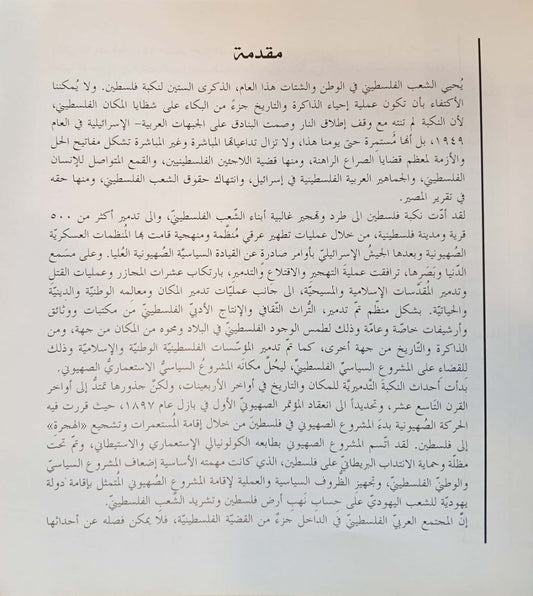 مقدمة
يُحيي الشعب الفلسطيني في الوطن والشتات هذا العام، الذكرى الستين لنكبة فلسطين. ولا يُمكننا
الأكتفاء بأن تكون عملية إحياء الذاكرة والتاريخ جزءً من البكاء على شظايا المكان الفلسطيني،
لأن النكبة لم تنته مع وقف إطلاق النار وصمت البنادق على الجبهات العربية- الإسرائيلية في العام
١٩٤٩، بل أنها مُستمرة حتى يومنا هذا، ولا تزال تداعياتها المباشرة وغير المباشرة تشكل مفاتيح الحل
والأزمة لمعظم قضايا الصراع الراهنة، ومنها قضية اللاجئين الفلسطينيين، والقمع المتواصل للإنسان
الفلسطيني، والجماهير العربية الفلسطينية في إسرائيل، وانتهاك حقوق الشعب الفلسطيني، ومنها حقه
في تقرير المصير.
لقد أدّت نكبة فلسطين الى طرد وتهجير غالبية أبناء الشّعب الفلسطينيّ، والى تدمير أكثر من ٥٠٠
قرية ومدينة فلسطينية، من خلال عمليات تطهير عرقي مُنظّمة ومنهجية قامت بها المنظمات العسكريّة
الصّهيونية وبعدها الجيشُ الإسرائيليّ بأوامر صادرةٍ عن القيادة السياسيّة الصّهيونية العُليا. وعلى مسمَع
الدّنيا وبَصَرها، ترافقت عملية التهجير والاقتلاع والتدمير، بارتكاب عشرات المجازر وعمليات القتل
وتدمير المُقدّسات الإسلامية والمسيحيّة، الى جَانب عمليّات تدمير المكان ومعالِمه الوطنيّة والدينيّة
والحياتيّة. بشكل منظّم تمّ تدمير، التُّراث الثّقافي والإنتاج الأدبيّ الفلسطينيّ من مكتبات ووثائق
وأرشيفات خاصّة وعامّة وذلك لطمس الوجود الفلسطينيّ في البلاد ومحوه من المكان من جهة، ومن
الذاكرة والتّاريخ من جهة أخرى، كما تمّ تدمير المؤسّسات الفلسطينيّة الوطنية والإسلاميّة وذلك
للقضاء على المشروع السياسي الفلسطينيّ، ليَحُلّ مكانَه المشروعُ السياسيُّ الاستعماريُّ الصهيوني.
بَدأت أحداث النكبة التّدميريّة للمكان والتاريخ في أواخر الأربعينات، ولكنّ جذورها تمتدُّ إلى أواخر
القرن التّاسع عشر، وتحديداً الى انعقاد المؤتمر الصهيوني الأول في بازل عام ١٨٩٧، حيث قررت فيه
الحركة الصّهيونية بدءَ المشروع الصهيوني في فلسطين من خلال إقامة المُستعمرات وتشجيع «الهجرة»
إلى فلسطين. لقد اتّسم المشروع الصهيوني بطابعه الكولونيالي الإستعماري والاستيطاني، وتمّ تحتَ
مظلّة وحماية الانتداب البريطانيّ على فلسطين، الذي كانت مهمته الأساسية إضعاف المشروع السياسيّ
والوطنيّ الفلسطينيّ، وتجهيز الظُّروف السياسية والعملية لإقامة المشروع الصُهيوني المُتمثل بإقامة دولة
يهوديّة للشعب اليهوديّ على حسابِ نَهب أرض فلسطين وتشريد الشّعب الفلسطينيّ.
إنّ المجتمع العربيّ الفلسطينيّ في الداخل جزءٌ من القضيّة الفلسطينيّة، فلا يمكن فصله عن أحداثها